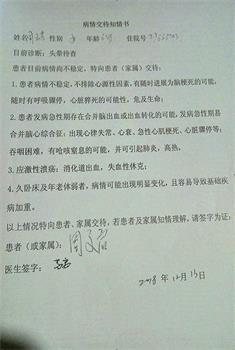 病情交待知情书
姓名 性别 年龄 住院号
目前诊断：头晕待查
患者目前病情尚不稳定，特向患者（家属）交待：
1.患者病情不稳定，不排除心源性因素，有随时进展为脑梗死的可能，
随时有呼吸骤停，心脏猝死的可能性，危及生命；
2.患者发病急性期存在合并脑出血或出血转化的可能，发病急性期易
合并脑心综合征；出现心律失常、心衰、急性心肌梗死、心脏骤停等；
吞咽困难，有呛咳窒息的可能，并可引起肺炎，高热，
3.应激性溃疡：消化道出血，失血性休克；
4.久卧床及年老体弱者，病情可能出现明显变化，且容易导致基础疾
病加重。
以上情况特向患者、家属交待，若患者及家属知情理解，请签字为证：
患者（或家属）：
医生签字：
2018年12月13日